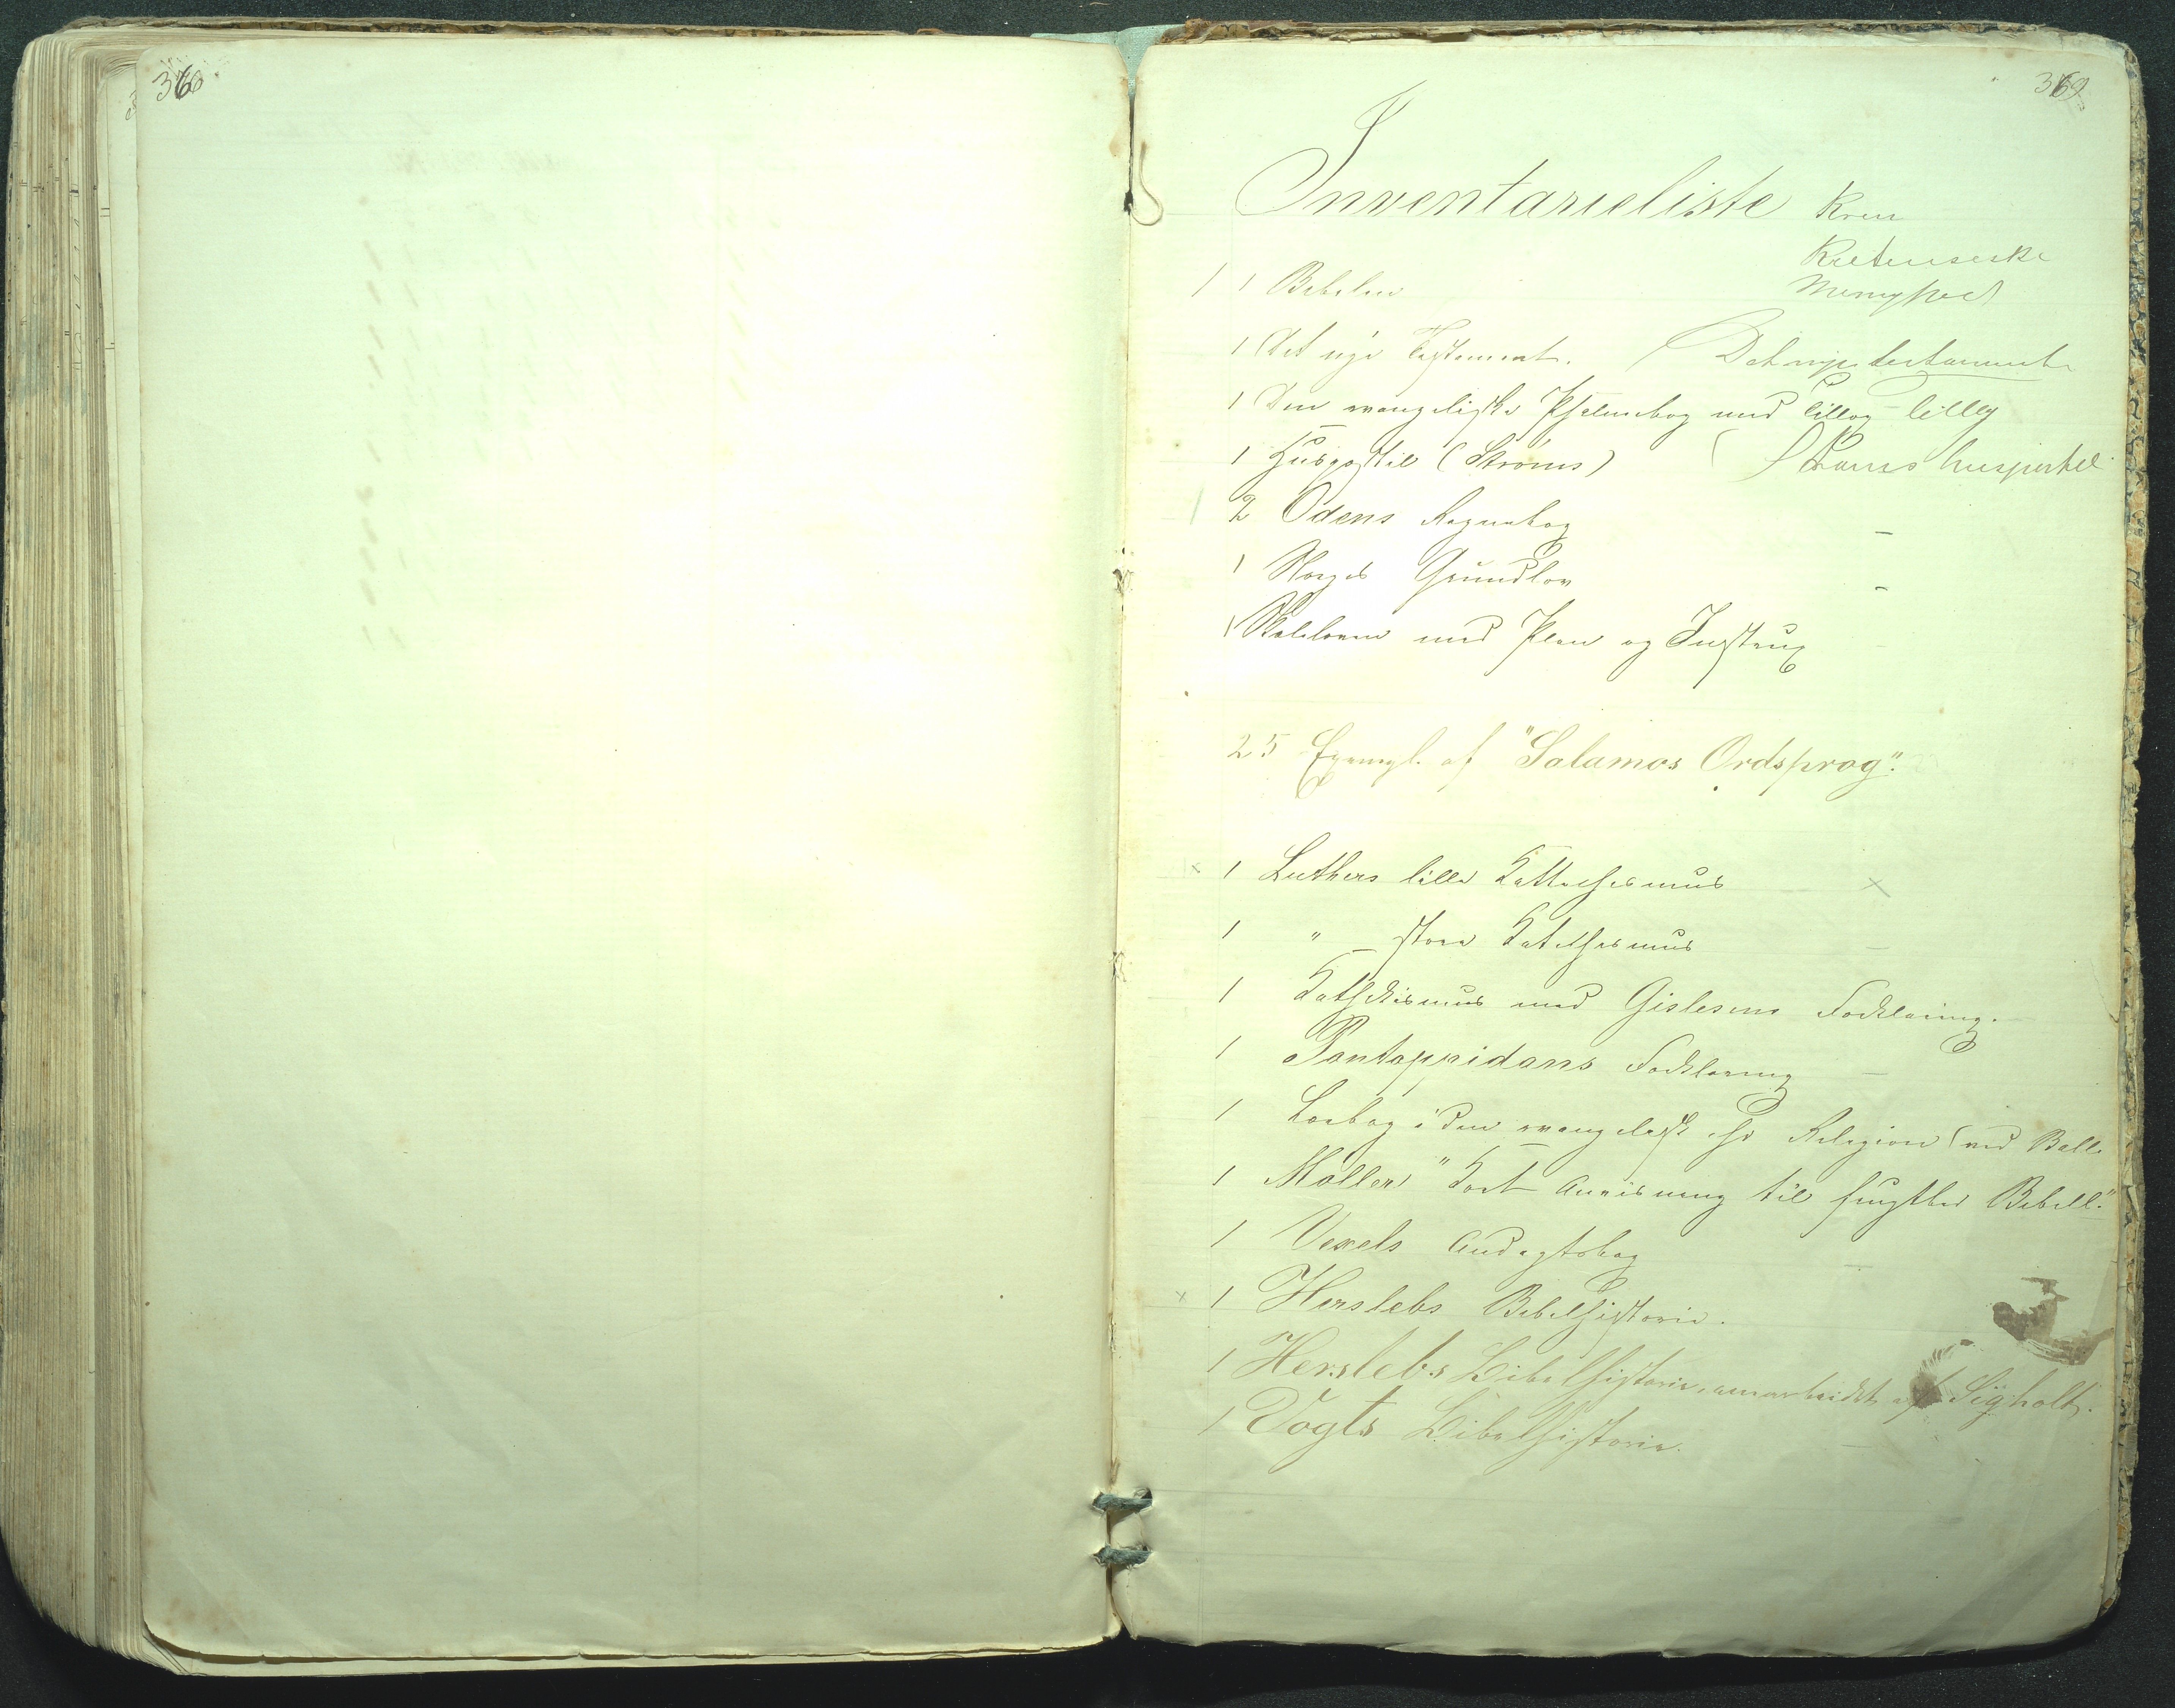 369
Inventarieliste
1 1 Bibelen
1 Det nye Testament. Det nye testamente
1 Den evangeliske Psalmebog med Tillæg
1 Huspostil (Strøms) huspostil
2 Odens Regnebog
1 Norges Grundlov
1 Skoleloven med Plan og Instrux
25 Exempl. af "Salamos Ordsprog".
x 1 Luthers lille Kattechismus x
1 " store Katechismus
1 Katechismus med Gislesens Forklaring.
1 Pontoppidans Forklaring
1 Lærebog i den evangelisk chr Religion ved Balle
1 Møller "Kort Anvisning til frugtbr Bibell."
1 Vexels Andagtsbog
x 1 Herslebs Bibelhistorie.
1 Herslebs Bibelhistorie, omarbeidet af Sigholt.
1 Vogts Bibelhistorie.